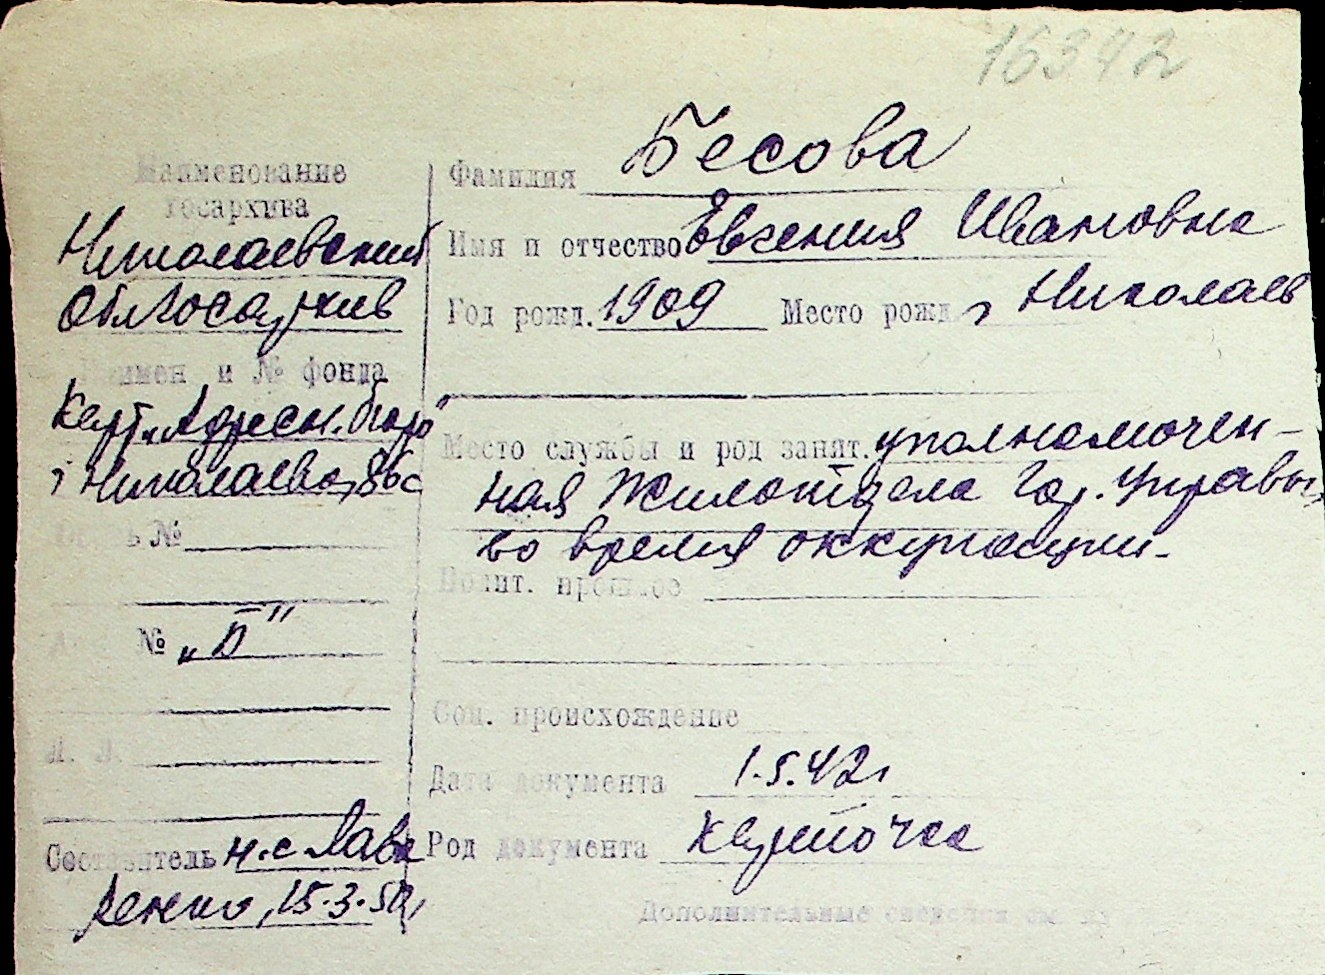 16342
Наименование
госархива
Николаевский
Облгосархив
Наимен и № фонда
Карт. „Адресн. бюро"
г Николаева,
№
№ „Б"
Л. Л.
Составитель н.с Лавр
ренко, 15.3.50г
Фамилия Бесова
Имя и отчество Евгения Ивановна
Год рожд. 1909 Место рожд г Николаев
Место службы и род занят. уполномочен-
ная Жилотдела Гор. Управы,
во время оккупации.
Полит. прошлое
Соц. происхождение
Дата документа 1.5.42г
Род документа карточка
Дополнительные сведения см